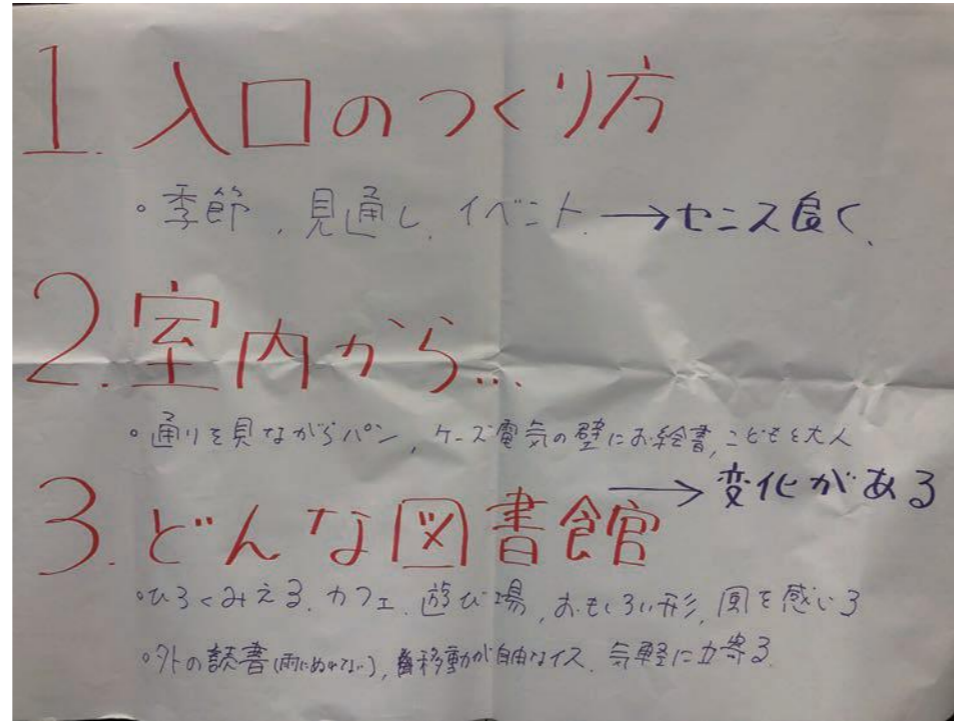 1. 入口のつくり方
。季節, 見通し, イベント. →センス良く.
2. 室内から...
。通りを見ながらパン, ケーズ電気の壁にお絵書, こどもと大人
→ 変化がある
3. どんな図書館
。ひろくみえる. カフェ. 遊び場, おもしろい形, 風を感じる
。外の読書(雨にぬれない), 移動が自由なイス. 気軽に立寄る.